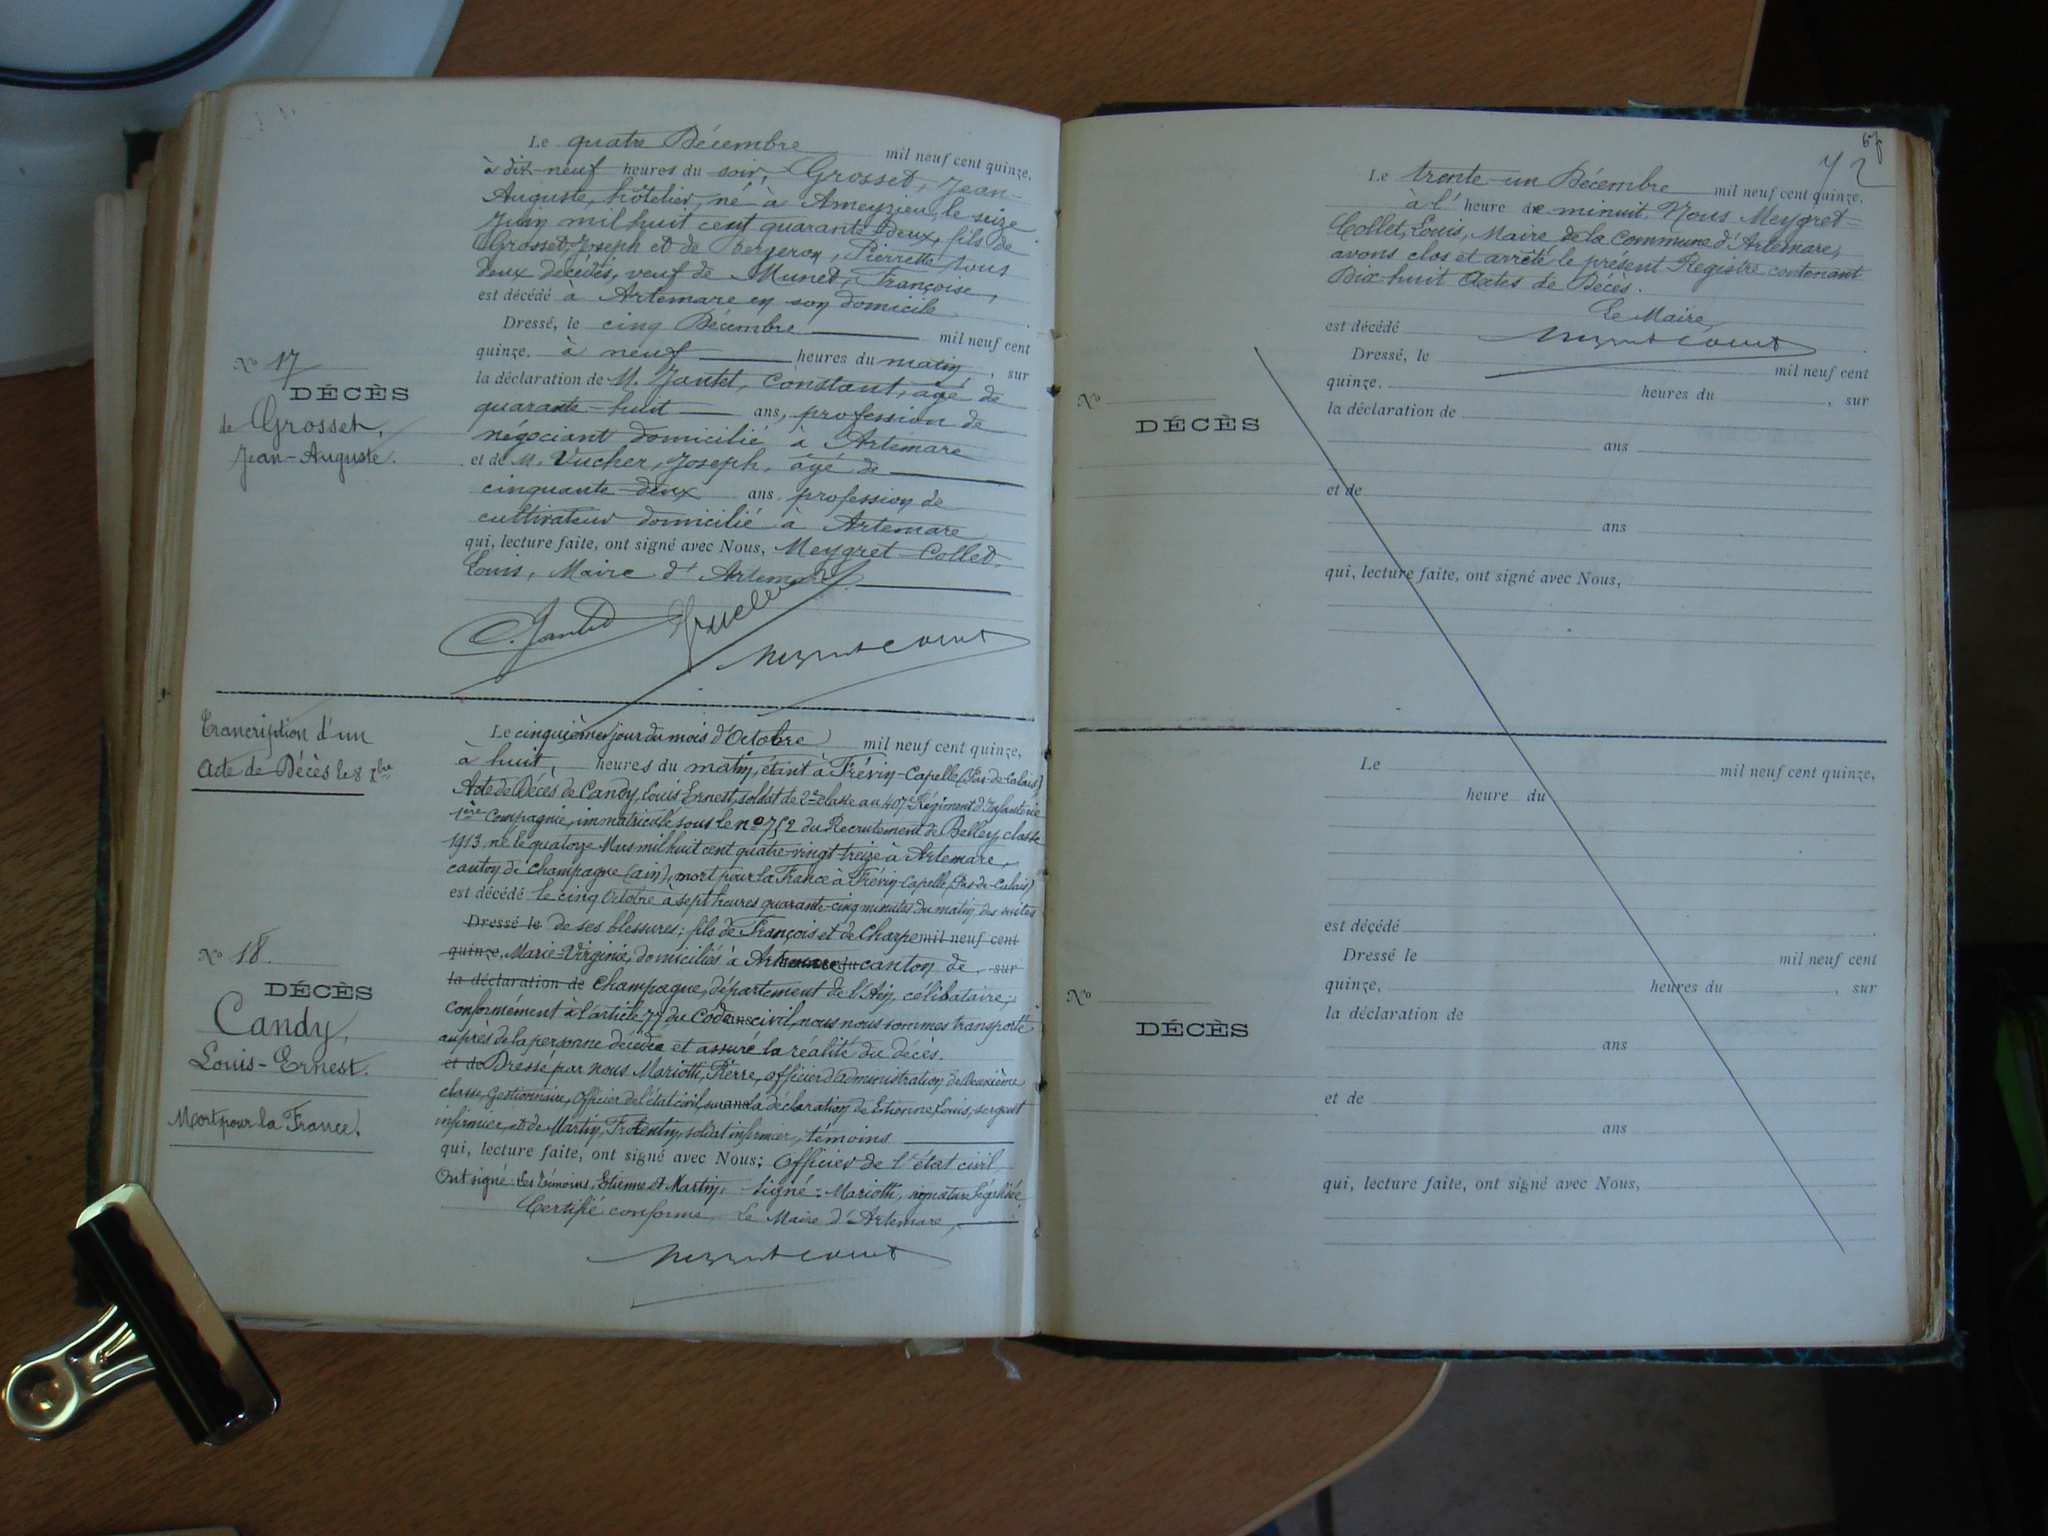 Le quatre Décembre mil neuf cent quinze,
à dix-neuf heures du soir, Grosset, Jean-
Auguste, hôtelier, né à Ameyzieu, le seize
Juin mil huit cent quarante-deux, fils de
Grosset, Joseph et de Bergeron, Pierrette tous
deux décédés, veuf de Munet, Françoise,
est décédé à Artemare en son domicile
Dressé, le cinq Décembre mil neuf cent
quinze, à neuf heures du matin, sur
la déclaration de M. Jantet, Constant, âgé de
quarante-huit ans, profession de
négociant domicilié à Artemare
et de M. Vucher, Joseph, âgé de
cinquante-deux ans, profession de
cultivateur domicilié à Artemare
qui, lecture faite, ont signé avec Nous, Meygret-Collet,
Louis, Maire d'Artemare
No 17
DÉCÈS
de Grosset,
Jean-Auguste.
C. Jantet
Trancription d'un
Acte de Décès le 8 Xbre
Le cinquième jour du mois d'Octobre mil neuf cent quinze,
à huit, heures du matin, étant à Frévin-Capelle (Pas-de-Calais)
Acte de Décès de Candy, Louis Ernest, soldat de 2e classe au 407e Régiment d'Infanterie
1ère Compagnie, immatriculé sous le no 752 du Recrutement de Belley, classe
1913, né le quatorze Mars mil huit cent quatre-vingt treize à Artemare,
canton de Champagne (Ain), mort pour la France à Frévin-Capelle (Pas-de-Calais)
est décédé le cinq Octobre à sept heures quarante-cinq minutes du matin des suites
Dressé le de ses blessures; fils de François et de Charpe mil neuf cent
quinze, Marie-Virginie, domiciliés à Artemare canton de sur
la déclaration de Champagne, département de l'Ain, célibataire,
conformément à l'article 77 du Code civil, nous nous sommes transporté
auprès de la personne décédée et assuré la réalité du décès.
et de Dressé par nous Mariotti, Pierre, officier d'administration de Deuxième
classe, Gestionnaire, Officier de l'état civil, sur la déclaration de Etienne, Louis, sergent
infirmier, et de Martin, soldat infirmier, témoins
qui, lecture faite, ont signé avec Nous; Officier de l'état civil
Ont signé: les témoins, Etienne et Martin, signé: Mariotti, signature légalisée
Certifié conforme, Le Maire d'Artemare,
No 18.
DÉCÈS
Candy,
Louis-Ernest.
Mort pour la France.
72
Le trente-un Décembre mil neuf cent quinze,
à l'heure de minuit Nous Meygret-
Collet, Louis, Maire de la Commune d'Artemare,
avons clos et arrêté le présent Registre contenant
Dix-huit Actes de Décès.
Le Maire,
est décédé
Dressé, le mil neuf cent
quinze, heures du , sur
la déclaration de
ans
et de
ans
qui, lecture faite, ont signé avec Nous,
No
DÉCÈS
Le mil neuf cent quinze,
heure du
est décédé
Dressé le mil neuf cent
quinze, heures du , sur
la déclaration de
ans
et de
ans
qui, lecture faite, ont signé avec Nous,
No
DÉCÈS